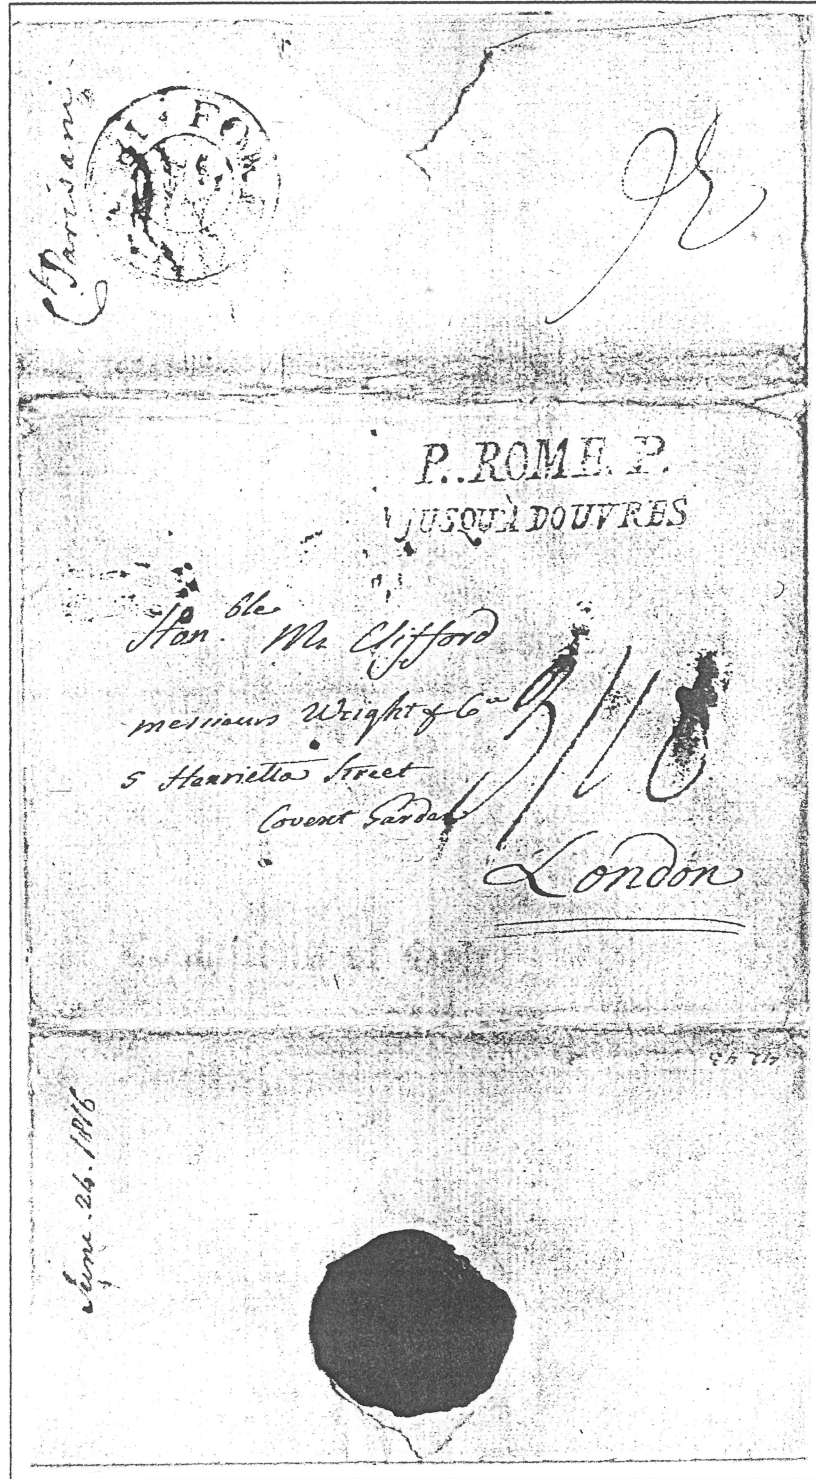 Ct. Parisani
P..ROME.P.
JUSQU'À DOUVRES
Hon.ble Mr Clifford
messieurs Wright & Co
3/10
5 Henrietta Street
Covent Garden
London
June. 24. 1816